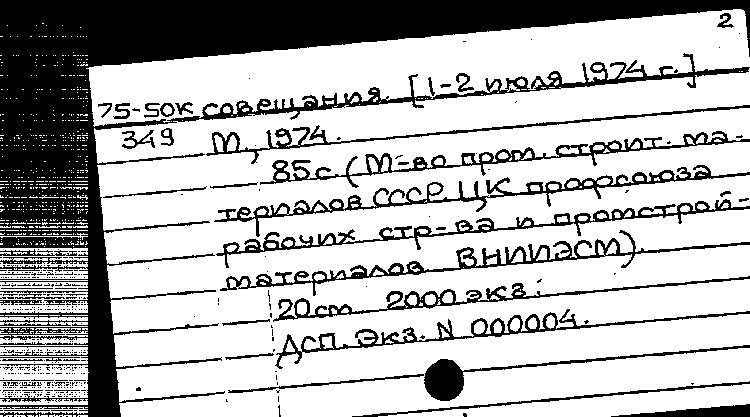 2
75-50к совещания. [1-2 июля 1974 г.]
349 М., 1974.
85с. (М-во пром. строит. ма-
териалов СССР. ЦК профсоюза
рабочих стр-ва и промстрой-
материалов ВНИИЭСМ).
20cm 2000 экз.
ДСП. Экз. N 000004.